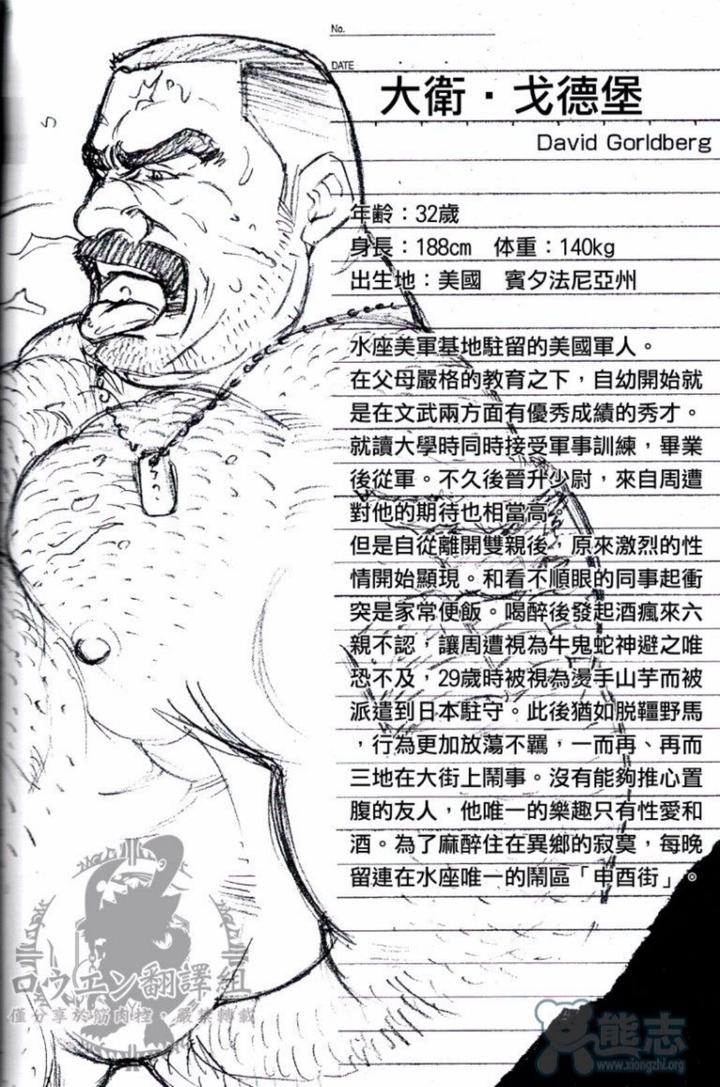 No.
DATE
大衛・戈德堡
David Gorldberg
年齡：32歲
身長：188cm　体重：140kg
出生地：美國　賓夕法尼亞州
水座美軍基地駐留的美國軍人。
在父母嚴格的教育之下，自幼開始就
是在文武兩方面有優秀成績的秀才。
就讀大學時同時接受軍事訓練，畢業
後從軍。不久後晉升少尉，來自周遭
對他的期待也相當高。
但是自從離開雙親後，原來激烈的性
情開始顯現。和看不順眼的同事起衝
突是家常便飯。喝醉後發起酒瘋來六
親不認，讓周遭視為牛鬼蛇神避之唯
恐不及，29歲時被視為燙手山芋而被
派遣到日本駐守。此後猶如脫韁野馬
，行為更加放蕩不羈，一而再、再而
三地在大街上鬧事。沒有能夠推心置
腹的友人，他唯一的樂趣只有性愛和
酒。為了麻醉住在異鄉的寂寞，每晚
留連在水座唯一的鬧區「申酉街」。
ロウエン翻譯組
僅分享於筋肉控，嚴禁轉載
熊志
www.xiongzhi.org